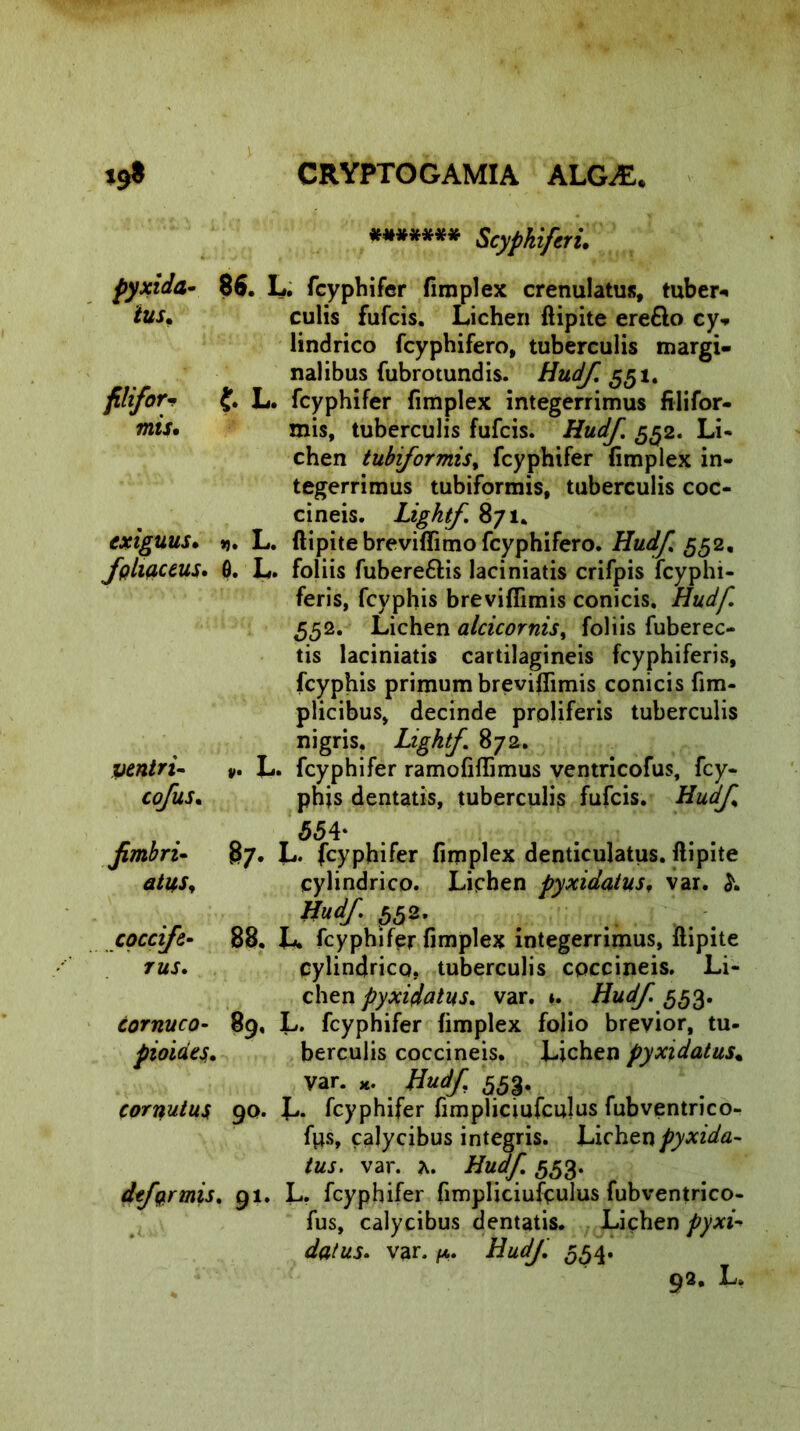 198 CRYPTOGAMIA ALGÆ.
******* Scyphiferi.
pyxida- 86. L. ſcyphifer ſimplex crenulatus, tuber-
tus. culis fuſcis. Lichen ſtipite erecto cy-
lindrico ſcyphifero, tuberculis margi-
nalibus ſubrotundis. Hudſ. 551.
filifor- ζ. L. ſcyphifer ſimplex integerrimus filifor-
mis. mis, tuberculis fuſcis. Hudſ. 552. Li-
chen tubiformis, ſcyphifer ſimplex in-
tegerrimus tubiformis, tuberculis coc-
cineis. Lightf. 871.
exiguus. η. L. ſtipite breviſſimo ſcyphifero. Hudſ. 552.
foliaceus. θ. L. foliis ſuberectis laciniatis criſpis ſcyphi-
feris, ſcyphis breviſſimis conicis. Hudſ.
552. Lichen alcicornis, foliis ſuberec-
tis laciniatis cartilagineis ſcyphiferis,
ſcyphis primum breviſſimis conicis ſim-
plicibus, decinde proliferis tuberculis
nigris. Lightf. 872.
ventri- ν. L. ſcyphifer ramoſiſſimus ventricoſus, ſcy-
coſus. phis dentatis, tuberculis fuſcis. Hudſ.
554.
fimbri- 87. L. ſcyphifer ſimplex denticulatus. ſtipite
atus, cylindrico. Lichen pyxidatus, var. δ.
Hudſ. 552.
coccife- 88. L. ſcyphifer ſimplex integerrimus, ſtipite
rus. cylindrico, tuberculis coccineis. Li-
chen pyxidatus. var. ι. Hudſ. 553.
cornuco- 89. L. ſcyphifer ſimplex folio brevior, tu-
pioides. berculis coccineis. Lichen pyxidatus.
var. κ. Hudſ. 553.
cornutus 90. L. ſcyphifer ſimpliciuſculus ſubventrico-
ſus, calycibus integris. Lichen pyxida-
tus. var. λ. Hudſ. 553.
deformis. 91. L. ſcyphifer ſimpliciuſculus ſubventrico-
ſus, calycibus dentatis. Lichen pyxi-
datus. var. μ. Hudſ. 554.
92. L.